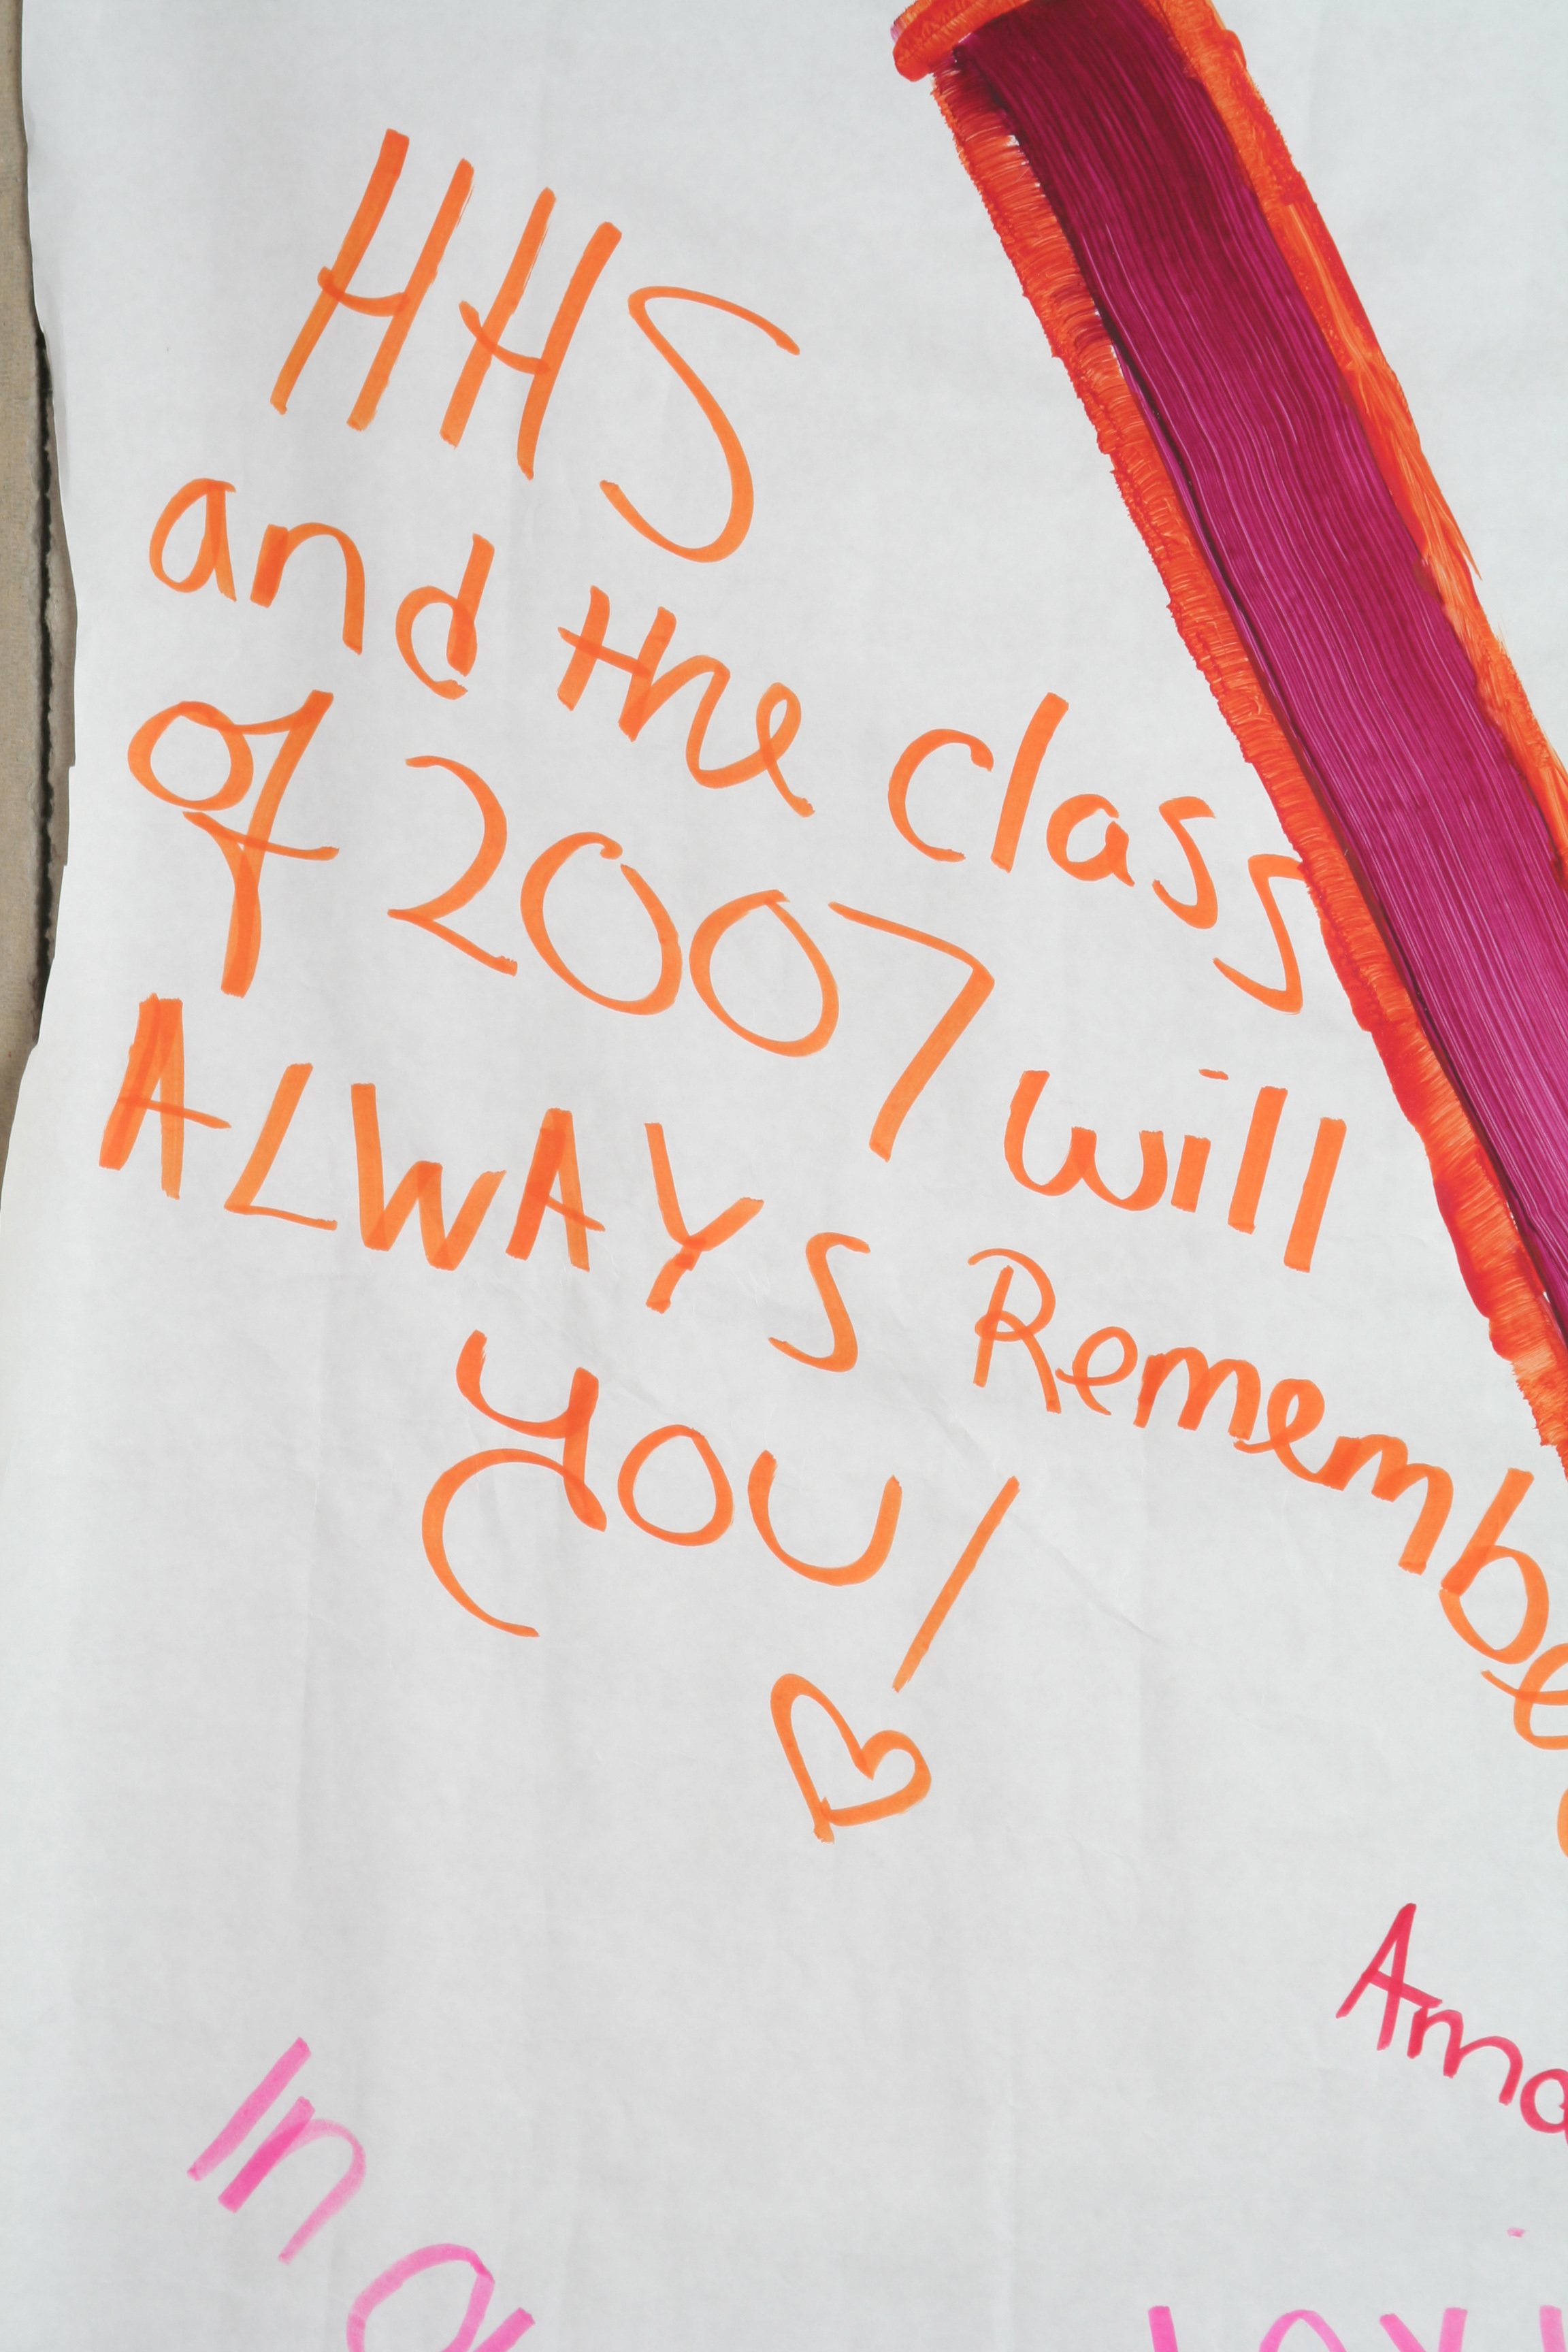 HHS
and the class
of 2007 will
ALWAYS Remember
you!
In